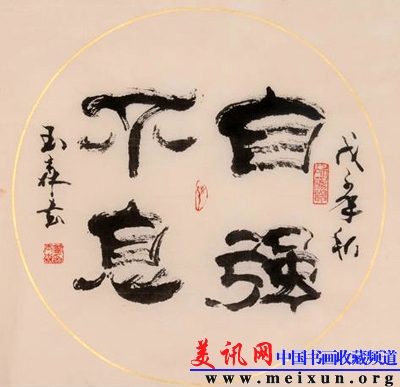 戊子年秋
自强
不息
玉森书
美讯网 中国书画收藏频道
www.meixun.org